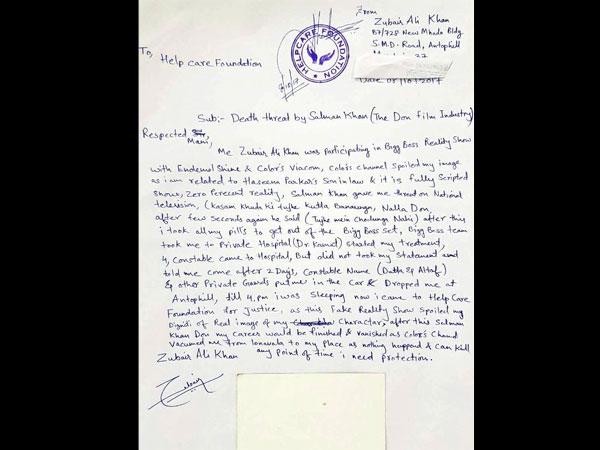 From
Zubair Ali Khan
B7/728 New Mhada Bldg
S.M.D. Road, Antophill
Date 08/10/2017
HELPCARE FOUNDATION
8/10/17
To,
Help care Foundation
Sub:- Death threat by Salman Khan (The Don film Industry)
Respected Sir,
Mam,
Me Zubair Ali Khan was participating in Bigg Boss Reality Show
with Endemol Shine & Color's Viacom, Color's channel spoiled my image
as i am related to Haseena Parkar's Son in law & it is fully Scripted
shows, Zero Percent reality, Salman Khan gave me threat on National
television, (Kasam Khuda ki tujhe Kutta Banaunga, Nalla Don
after few seconds again he said (Tujhe mein Chodunga Nahi) after this
i took all my pills to get out of the Bigg Boss Set, Bigg Boss team
took me to Private Hospital (Dr. ) started my treatment,
4, Constable came to Hospital, But did not took my Statement and
told me come after 2 Days, Constable Name (
& other Private Guards put me in the Car & Dropped me at
Antophill, till 4.pm i was Sleeping now i came to Help Care
Foundation for Justice, as this Fake Reality Show spoiled my
Dignity of Real image of my Charactar, after this Salman
Khan Don my Career would be finished & vanished as Color's Channel
me from lonavala to my place as nothing happend & can Kill
Zubair Ali Khan any Point of time i need protection.
Zubair